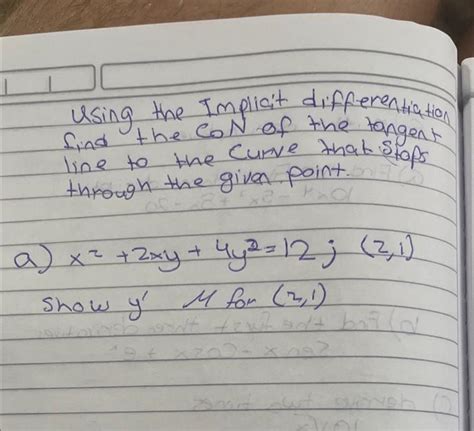 Using the Implicit differentiation
find the CoN of the tangent
line to the curve that stops
through the given point.
a) x² + 2xy + 4y² = 12 ; (2,1)
show y' M for (2,1)